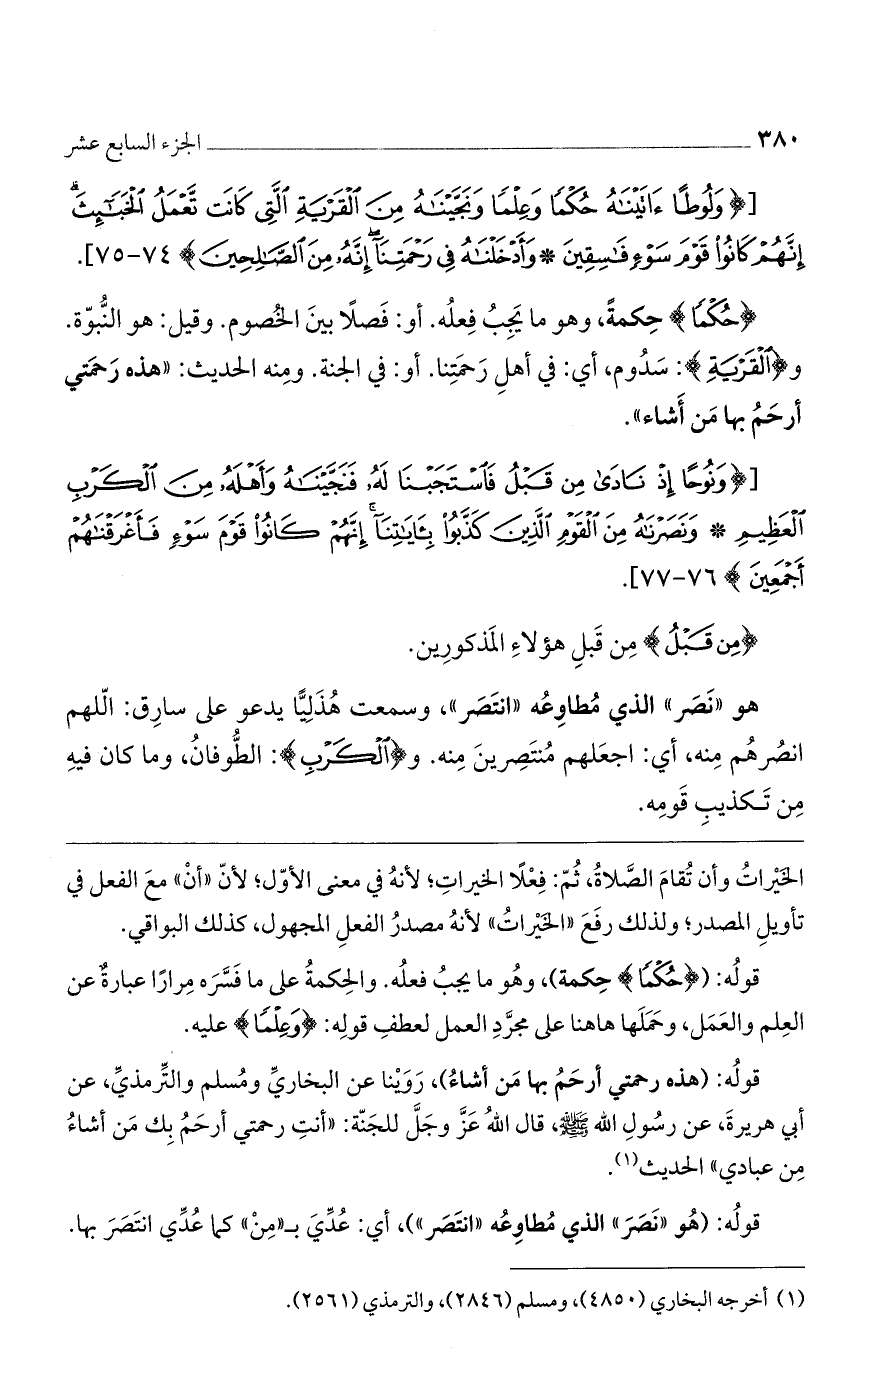 ٣٨٠ الجزء السابع عشر
[﴿وَلُوطًا ءَاتَيْنَٰهُ حُكْمًا وَعِلْمًا وَنَجَّيْنَٰهُ مِنَ ٱلْقَرْيَةِ ٱلَّتِى كَانَت تَّعْمَلُ ٱلْخَبَٰٓئِثَۗ
إِنَّهُمْ كَانُوا۟ قَوْمَ سَوْءٍ فَٰسِقِينَ * وَأَدْخَلْنَٰهُ فِى رَحْمَتِنَآۖ إِنَّهُۥ مِنَ ٱلصَّٰلِحِينَ﴾ ٧٤-٧٥].
﴿حُكْمًا﴾ حِكمةً، وهو ما يَجِبُ فِعلُه. أو: فَصلًا بينَ الخُصوم. وقيل: هو النُّبوّة.
و﴿ٱلْقَرْيَةِ﴾: سَدُوم، أي: في أهلِ رَحمَتِنا. أو: في الجنة. ومِنه الحديث: «هذه رَحمَتي
أرحَمُ بها مَن أَشاء».
[﴿وَنُوحًا إِذْ نَادَىٰ مِن قَبْلُ فَٱسْتَجَبْنَا لَهُۥ فَنَجَّيْنَٰهُ وَأَهْلَهُۥ مِنَ ٱلْكَرْبِ
ٱلْعَظِيمِ * وَنَصَرْنَٰهُ مِنَ ٱلْقَوْمِ ٱلَّذِينَ كَذَّبُوا۟ بِـَٔايَٰتِنَآۚ إِنَّهُمْ كَانُوا۟ قَوْمَ سَوْءٍ فَأَغْرَقْنَٰهُمْ
أَجْمَعِينَ﴾ ٧٦-٧٧].
﴿مِن قَبْلُ﴾ مِن قَبلِ هؤلاءِ المَذكورِين.
هو «نَصَر» الذي مُطاوِعُه «انتَصَر»، وسمعت هُذَليًّا يدعو على سارِق: اللّهم
انصُرهُم مِنه، أي: اجعَلهم مُنتَصِرينَ مِنه. و﴿ٱلْكَرْبِ﴾: الطُّوفانُ، وما كان فيهِ
مِن تَكذيبِ قَومِه.
الخَيْراتُ وأن تُقامَ الصَّلاةُ، ثُمّ: فِعْلًا الخيراتِ؛ لأنهُ في معنى الأوّل؛ لأنّ «أنْ» معَ الفعل في
تأويلِ المصدر؛ ولذلك رفَعَ «الخَيْراتُ» لأنهُ مصدرُ الفعلِ المجهول، كذلك البواقي.
قولُه: (﴿حُكْمًا﴾ حِكمة)، وهُو ما يجبُ فعلُه. والحِكمةُ على ما فَسَّرَه مِرارًا عبارةٌ عن
العِلم والعَمَل، وحَمَلَها هاهنا على مجرَّدِ العمل لعطفِ قولِه: ﴿وَعِلْمًا﴾ عليه.
قولُه: (هذه رحمتي أرحَمُ بها مَن أشاءُ)، رَوَيْنا عن البخاريِّ ومُسلم والتِّرمذيِّ، عن
أبي هريرةَ، عن رسُولِ الله ﷺ، قال اللهُ عَزَّ وجَلَّ للجَنّة: «أنتِ رحمتي أرحَمُ بِك مَن أشاءُ
مِن عبادي» الحديث(١).
قولُه: (هُو «نَصَرَ» الذي مُطاوِعُه «انتَصَر»)، أي: عُدِّيَ بـ«مِنْ» كما عُدِّي انتَصَرَ بها.
(١) أخرجه البخاري (٤٨٥٠)، ومسلم (٢٨٤٦)، والترمذي (٢٥٦١).